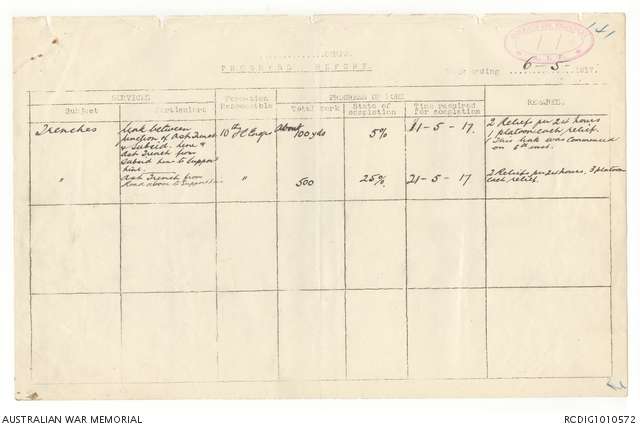 141
CORPS.
PROGRESS REPORT.
ending 6-5- 1917.
SERVICES
PROGRESS OF WORK
REMARKS.
Subject
Particulars
Formation Responsible
Total Work
State of completion
Time required for completion
Trenches
Link between
junction of Ash Trench
& Subsid. line &
Ash Trench from
Subsid line to Support
line.
10th
About 100 yds
5%
11-5-17.
2 Reliefs per 24 hours
1 platoon each relief.
This link was commenced
on 5th inst.
"
Ash Trench from
Road above to support
"
500
25%
21-5-17
2 Reliefs per 24 hours, 3 platoons
each relief.
AUSTRALIAN WAR MEMORIAL
RCDIG1010572